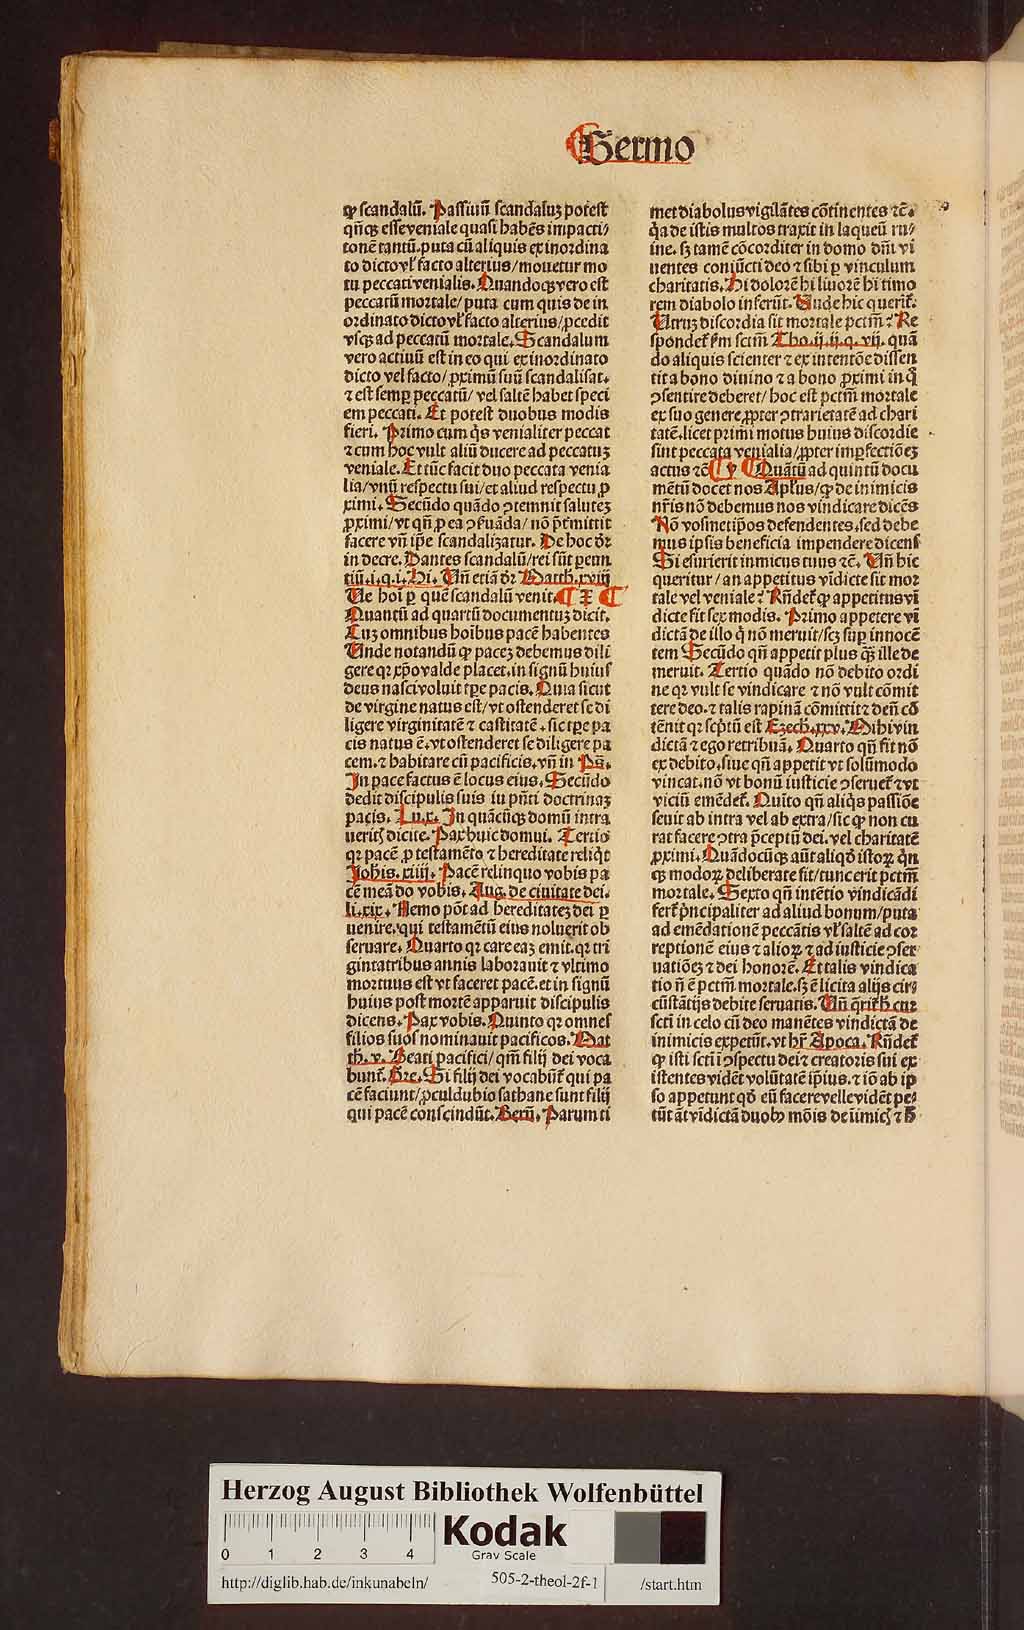 Sermo
ꝙ scandalū. Passiuū scandaluꝫ potest
qn̄qꝫ esse veniale quasi habēs impacti/
tonē tantū. puta cū aliquis ex inordina
to dicto vl̓ facto alterius/ mouetur mo
tu peccati venialis. Quandoqꝫ vero est
peccatū mortale/ puta cum quis de in
ordinato dicto vl̓ facto alterius/ ꝓcedit
vsqꝫ ad peccatū mortale. Scandalum
vero actiuū est in eo qui ex inordinato
dicto vel facto/ ꝓximū suū scandalisat.
⁊ est semꝑ peccatū/ vel saltē habet speci
em peccati. Et potest duobus modis
fieri. Primo cum qͥs venialiter peccat
⁊ cum hoc vult aliū ducere ad peccatuꝫ
veniale. Et tūc facit duo peccata venia
lia/ vnū respectu sui/ et aliud respectu ꝓ
ximi. Secūdo quādo ꝯtemnit saluteꝫ
ꝓximi/ vt qn̄ ꝓ ea ꝯẜuāda/ nō p̄t̄mittit
facere vn̄ ip̄e scandalizatur. De hoc dr̄
in decre. Dantes scandalū/ rei sūt ꝑeun
tiū. i. q. i. Hi. Vn̄ etiā dr̄ Matth. xviij
Ue hoi̅ ꝑ quē scandalū venit. ¶ X ¶
Quantū ad quartū documentuꝫ dicit.
Cuꝫ omnibus hoi̅bus pacē habentes
Unde notandū ꝙ paceꝫ debemus dili
gere qꝛ xp̄o valde placet. in signū huius
deus nasci voluit tꝑe pacis. Quia sicut
de virgine natus est/ vt ostenderet se di
ligere virginitatē ⁊ castitatē. sic tꝑe pa
cis natus ē. vt ostenderet se diligere pa
cem. ⁊ habitare cū pacificis. vn̄ in Ps̄.
In pace factus ē locus eius. Secūdo
dedit discipulis suis in pn̄ti doctrinaꝫ
pacis. Lu. x. In quācūqꝫ domū intra
ueritꝭ dicite. Pax huic domui. Tertio
qꝛ pacē ꝓ testamēto ⁊ hereditate reliqͥt
Joh̄is. xiiij. Pacē relinquo vobis pa
cē meā do vobis. Aug. de ciuitate dei.
li. xix. Nemo pōt ad hereditateꝫ dei ꝑ
uenire. qui testamētū eius noluerit ob
seruare. Quarto qꝛ care eaꝫ emit. qꝛ tri
ginta tribus annis laborauit ⁊ vltimo
mortuus est vt faceret pacē. et in signū
huius post mortē apparuit discipulis
dicens. Pax vobis. Quinto qꝛ omnes
filios suos nominauit pacificos. Mat
th. v. Beati pacifici/ qm̄ filij dei voca
bunt̉. Gre. Si filij dei vocabūt̉ qui pa
cē faciunt/ ꝓculdubio sathane sunt filij
qui pacē conscindūt. Bern̄. Parum ti
met diabolus vigilātes cōtinentes ⁊c̄.
qͥa de istis multos traxit in laqueū ru/
ine. sꝫ tamē cōcorditer in domo dn̄i vi
uentes coniūcti deo ⁊ sibi ꝑ vinculum
charitatis. Hi dolorē hi liuorē hi timo
rem diabolo inferūt. Unde hic querit̉.
Utruꝫ discordia sit mortale pctm̄? Re
spondet̉ ẜm sctm̄ Tho. ij. ij. q. vij. quā
do aliquis scienter ⁊ ex intentōe dissen
tit a bono diuino ⁊ a bono ꝓximi in qͦ
ꝯsentire deberet/ hoc est pctm̄ mortale
ex suo genere ꝓpter ꝯtrarietatē ad chari
tatē. licet primi motus huius discordie
sint peccata venialia/ ꝓpter imꝑfectiōeꝫ
actus ⁊c̄ ¶ V ¶ Quātū ad quintū docu
mētū docet nos Apl̓us/ ꝙ de inimicis
nr̄is nō debemus nos vindicare dicēs
Nō vosmetip̄os defendentes. sed debe
mus ipsis beneficia impendere dicens
Si esurierit inimicus tuus ⁊c̄. Vn̄ hic
queritur/ an appetitus vīdicte sit mor
tale vel veniale? Rn̄det̉ ꝙ appetitus vī
dicte fit sex modis. Primo appetere vī
dictā de illo qͥ nō meruit/ scꝫ suꝑ innocē
tem Secūdo qn̄ appetit plus qͣꝫ ille de
meruit. Tertio quādo nō debito ordi
ne qꝛ vult se vindicare ⁊ nō vult cōmit
tere deo. ⁊ talis rapinā cōmittit ⁊ deū cō
tēnit qꝛ scp̄tū est Ezech. xxv. Mihi vin
dictā ⁊ ego retribuā. Quarto qn̄ fit nō
ex debito. siue qn̄ appetit vt solūmodo
vincat. nō vt bonū iusticie ꝯseruet̉ ⁊ vt
viciū emēdet̉. Quito qn̄ aliqͥs passiōe
seuit ab intra vel ab extra/ sic ꝙ non cu
rat facere ꝯtra p̄ceptū dei. vel charitatē
ꝓximi. Quādocūqꝫ aūt aliqͦ istoꝝ qͥn
qꝫ modoꝝ deliberate fit/ tunc erit pctm̄
mortale. Sexto qn̄ intētio vindicādi
fert̉ pͥncipaliter ad aliud bonum/ puta
ad emēdationē peccātis vl̓ saltē ad cor
reptionē eius ⁊ alioꝝ ⁊ ad iusticie ꝯser
uatiōeꝫ ⁊ dei honorē. Et talis vindica
tio nō ē pctm̄ mortale. sꝫ ē licita alijs cir/
cūstātijs debite seruatis. Vn̄ q̄rit̉ h̄ cur
scti̅ in celo cū deo manētes vindictā de
inimicis expetūt. vt hr̄ Apoca. Rn̄det̉
ꝙ isti scti̅ i̅ ꝯspectu dei ⁊ creatoris sui ex
istentes vidēt volūtatē ip̄ius. ⁊ iō ab ip
so appetunt qd̓ eū facere velle vidēt pe/
tūt āt vīdictā duobꝫ mōis de īimicꝭ ⁊ h̄
Herzog August Bibliothek Wolfenbüttel
0 1 2 3 4
Kodak
Gray Scale
http://diglib.hab.de/inkunabeln/ 505-2-theol-2f-1 /start.htm